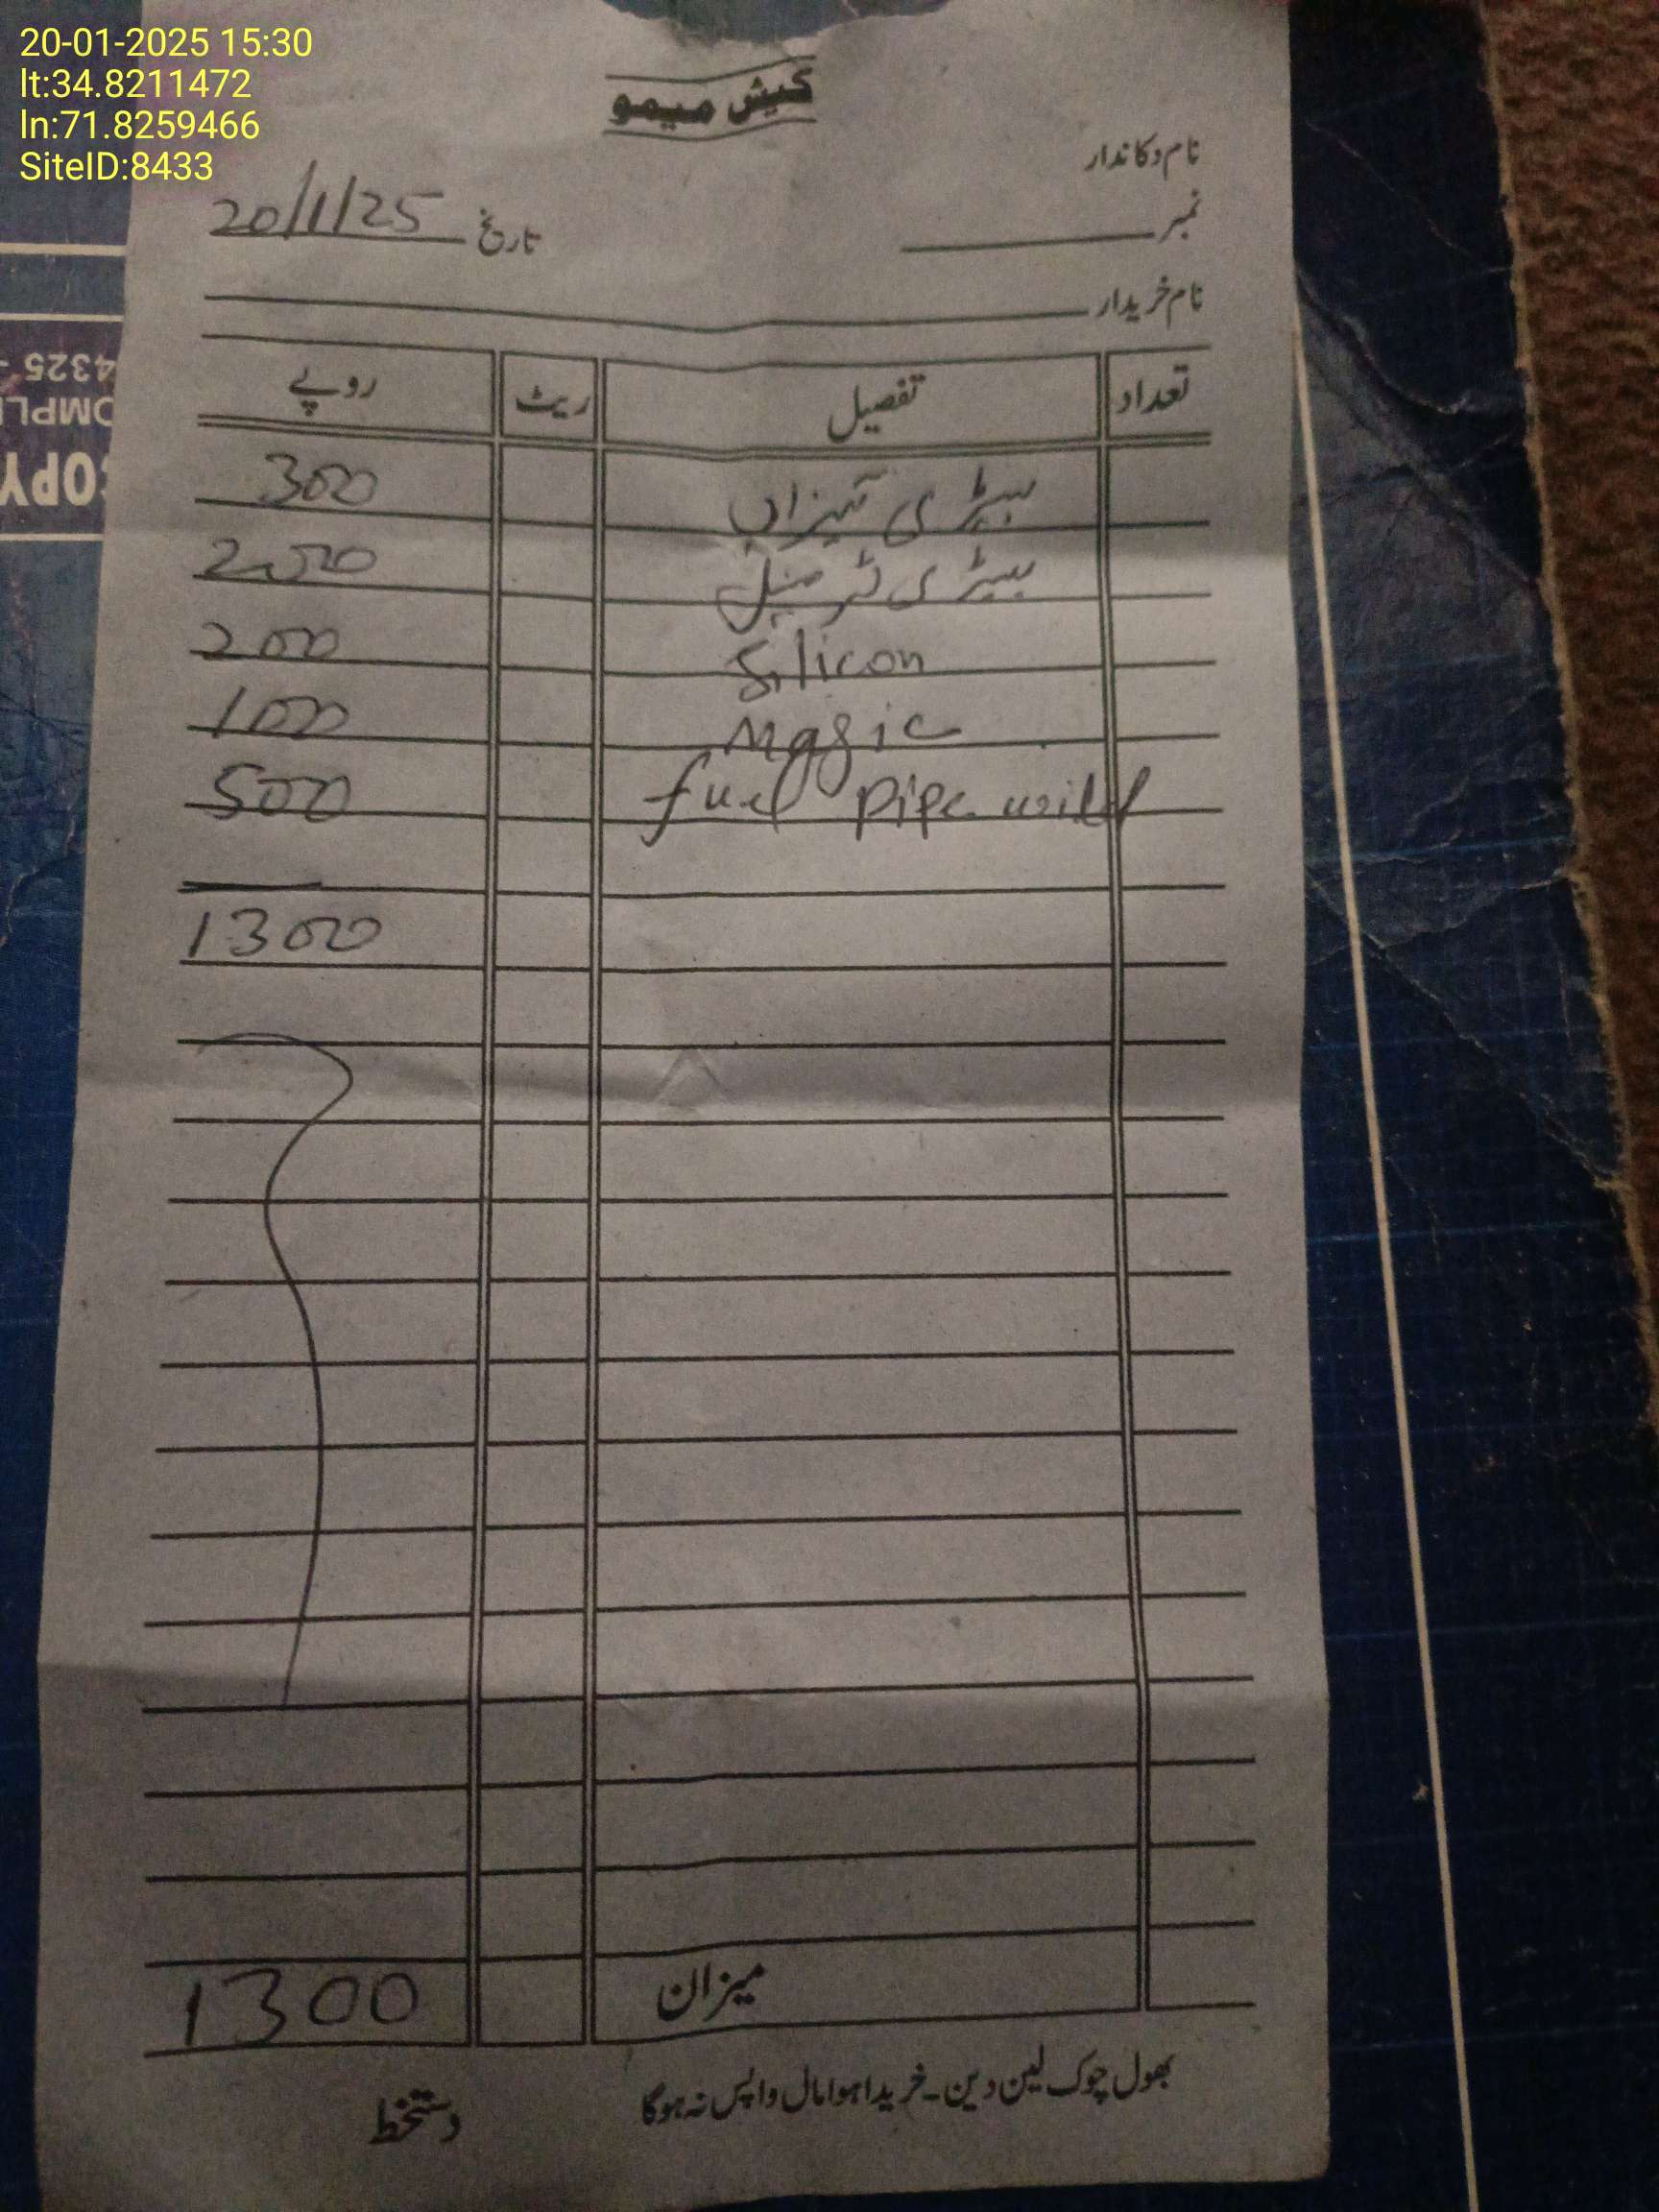 20-01-2025 15:30
lt:34.8211472
ln:71.8259466
SiteID:8433
کیش میمو
نام دکاندار
نمبر تاریخ 20/1/25
نام خریدار
تعداد تفصیل ریٹ روپے
بیٹری تیزاب 300
بیٹری ٹرمینل 200
Silicon 200
Magic 100
fuel pipe 500
1300
میزان 1300
بھول چوک لین دین۔ خریدا ہوا مال واپس نہ ہوگا
دستخط
4325
COPY